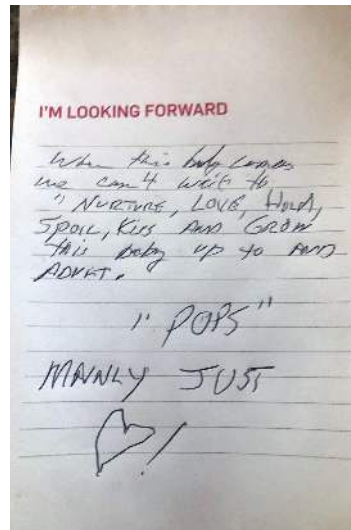 I'M LOOKING FORWARD
When this baby comes
we can't wait to
" NURTURE, LOVE, HOLD,
SPOIL, KISS AND GROW
this baby up to AND
ADULT.
" POPS"
MAINLY JUST